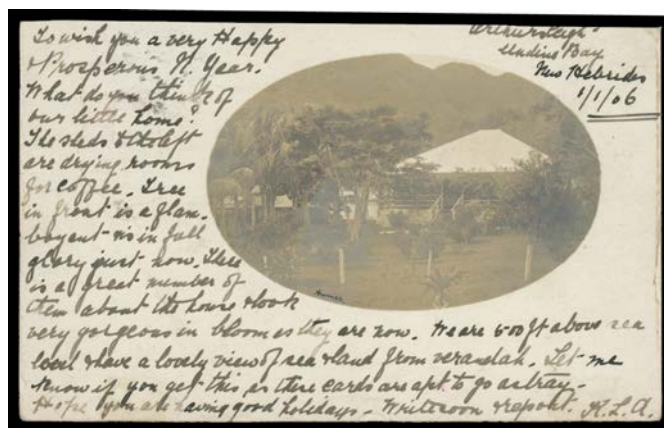 Arthursleigh
Undine Bay
New Hebrides
1/1/06
To wish you a very Happy
& Prosperous N. Year.
What do you think of
our little home?
The sheds to the left
are drying rooms
for coffee. Tree
in front is a flam-
boyant & is in full
glory just now. There
is a great number of
them about the house & look
very gorgeous in bloom as they are now. We are 500 ft above sea
level & have a lovely view of sea & land from verandah. Let me
know if you get this, as these cards are apt to go astray -
Hope you are having good holidays - Write soon & report. K.L.A.